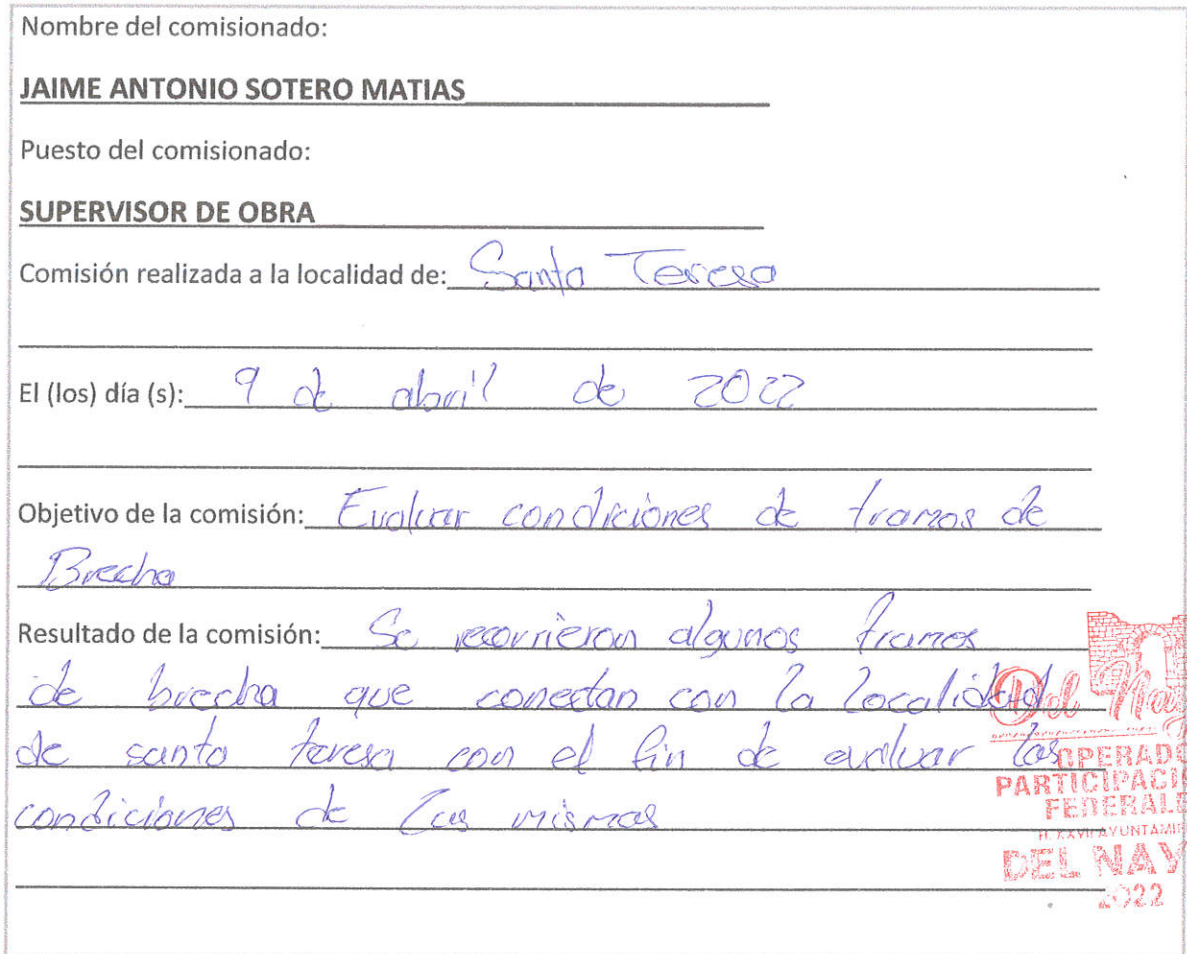 Nombre del comisionado:
JAIME ANTONIO SOTERO MATIAS
Puesto del comisionado:
SUPERVISOR DE OBRA
Comisión realizada a la localidad de: Santa Teresa
El (los) día (s): 9 de abril de 2022
Objetivo de la comisión: Evaluar condiciones de tramos de
Brecha
Resultado de la comisión: Se recorrieron algunos tramos
de brecha que conectan con la localidad
de santa teresa con el fin de evaluar las
condiciones de las mismas
Del Nay
OPERADO
PARTICIPACI
FEDERALE
H. XXVII AYUNTAMIE
DEL NAY
2022